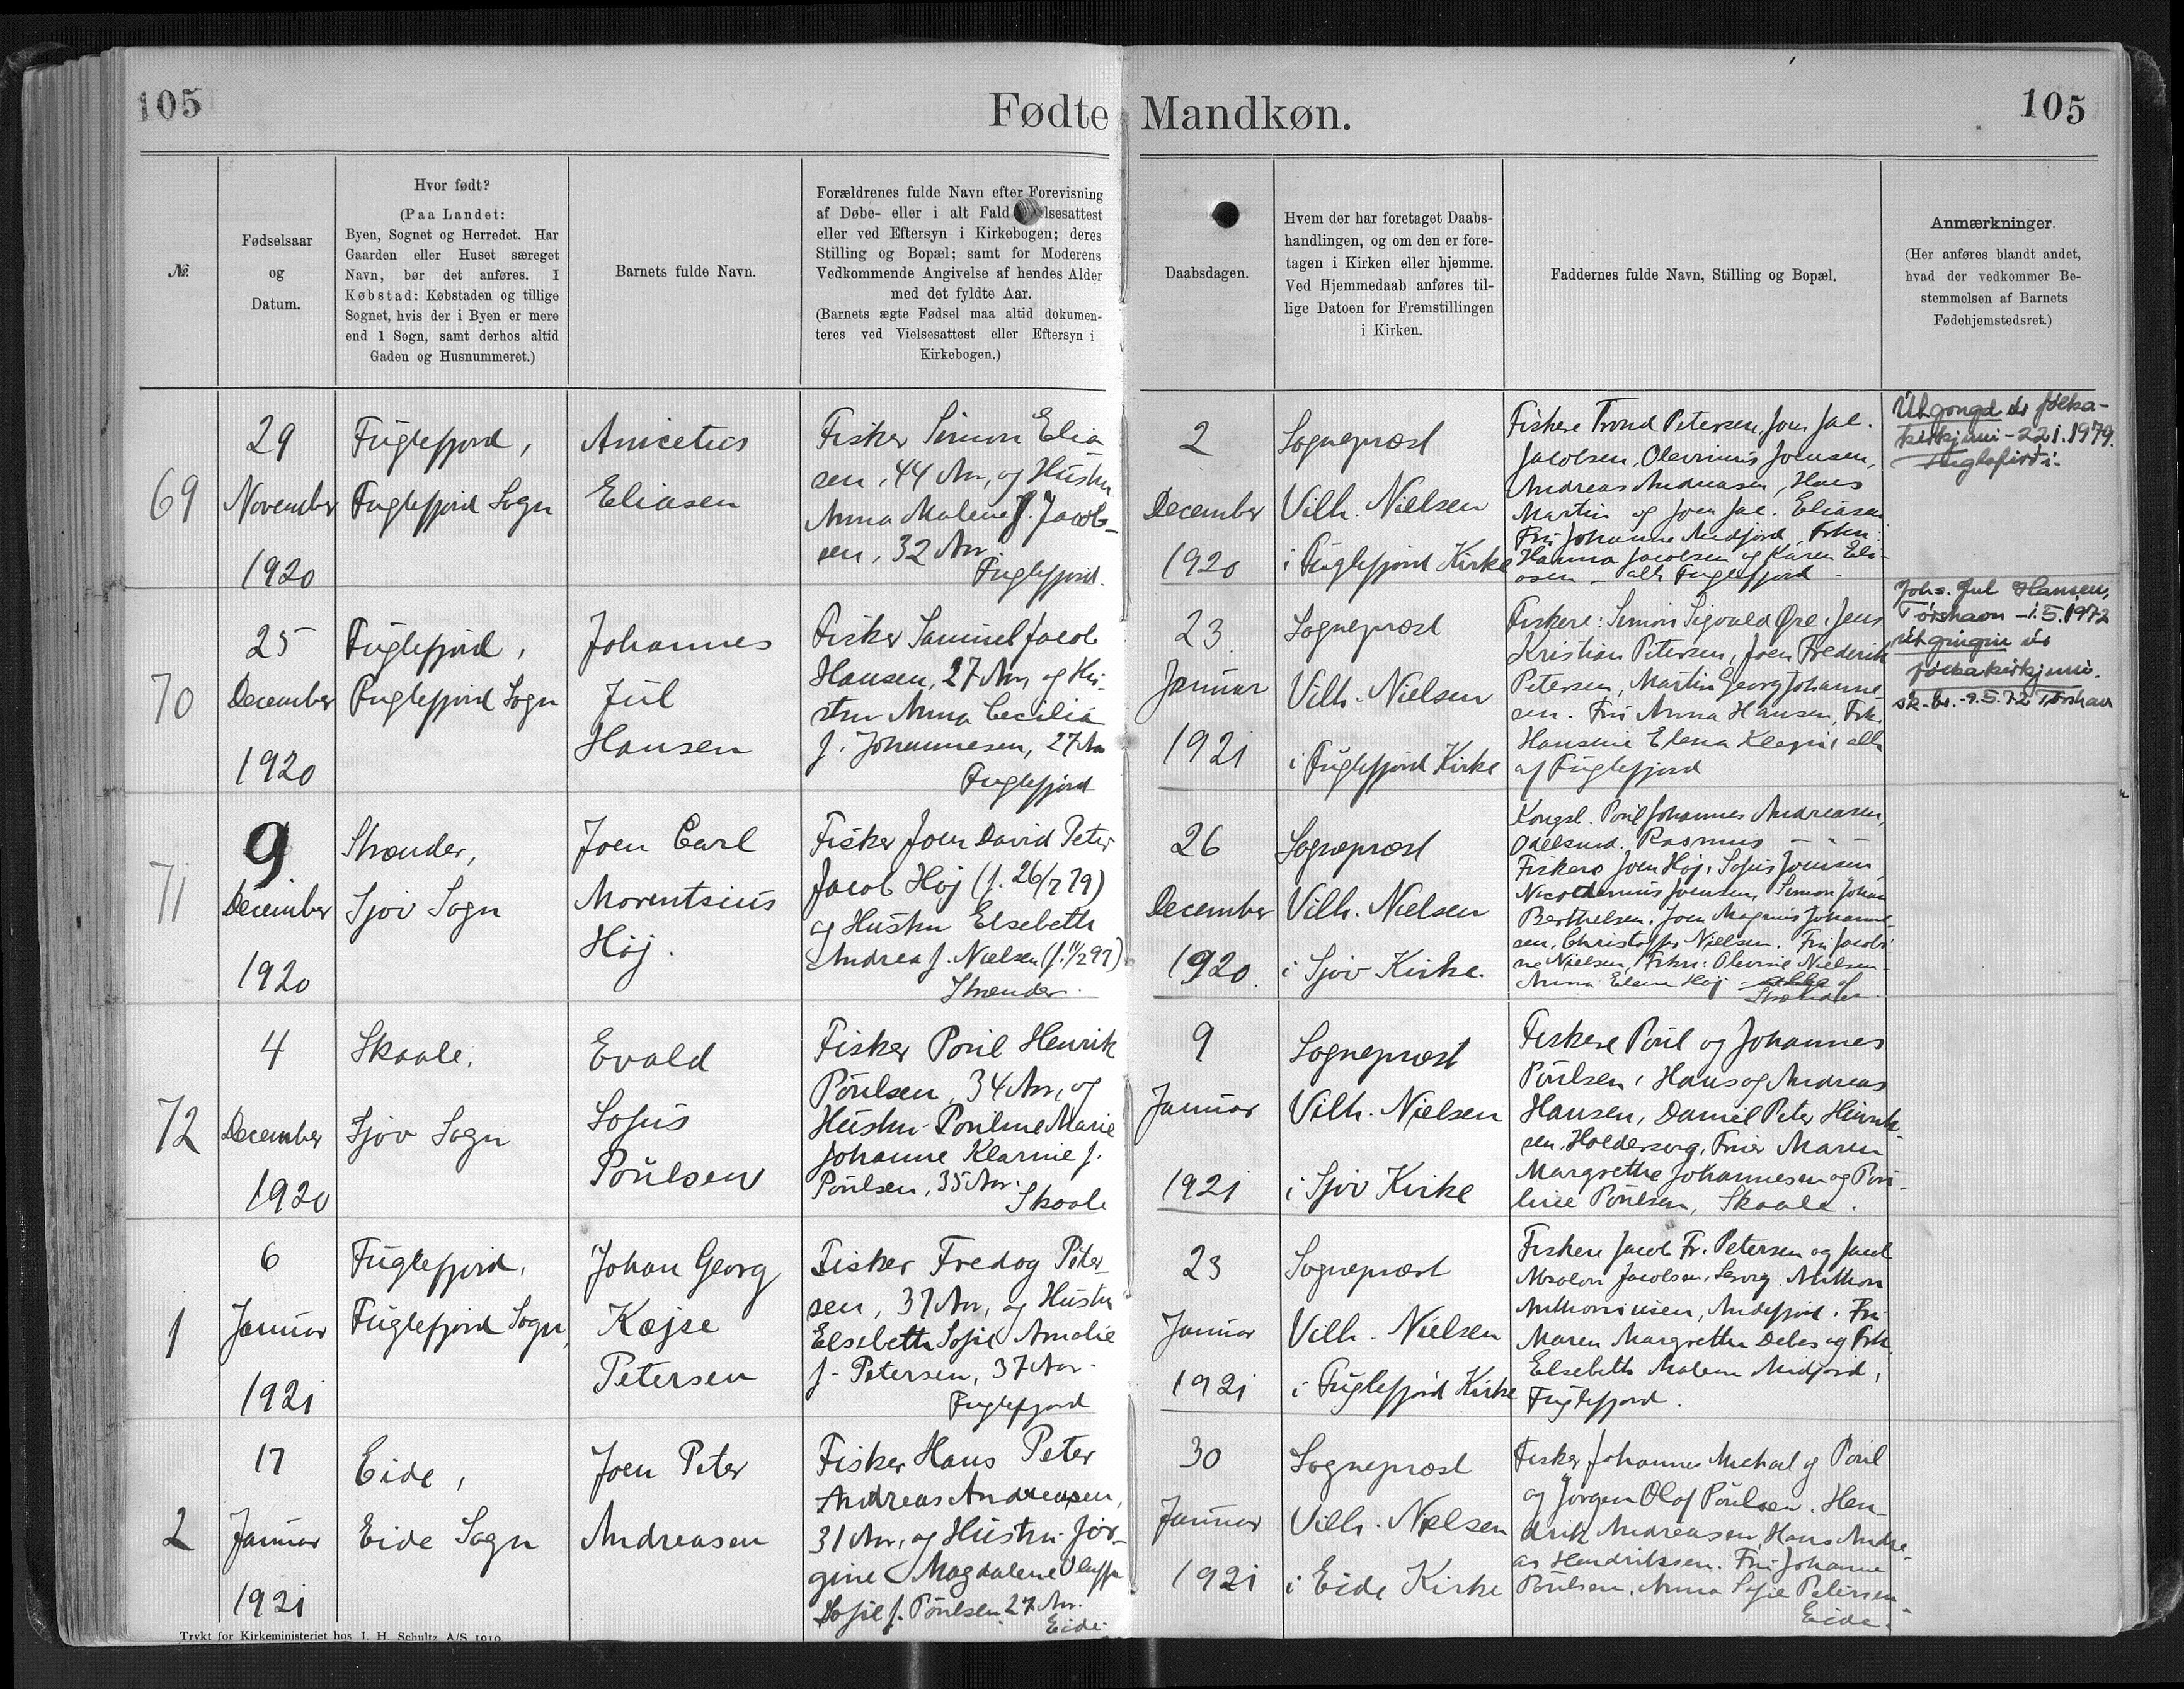 105
Fødte Mandkøn.
105
№.
Fødselsaar
og
Datum.
Hvor født?
(Paa Landet:
Byen, Sognet og Herredet. Har
Gaarden eller Huset særeget
Navn, bør det anføres. I
Købstad: Købstaden og tillige
Sognet, hvis der i Byen er mere
end 1 Sogn, samt derhos altid
Gaden og Husnummeret.)
Barnets fulde Navn.
Forældrenes fulde Navn efter Forevisning
af Døbe- eller i alt Fald lsesattest
eller ved Eftersyn i Kirkebogen; deres
Stilling og Bopæl; samt for Moderens
Vedkommende Angivelse af hendes Alder
med det fyldte Aar.
(Barnets ægte Fødsel maa altid dokumen-
teres ved Vielsesattest eller Eftersyn i
Kirkebogen.)
Daabsdagen.
Hvem der har foretaget Daabs-
handlingen, og om den er fore-
tagen i Kirken eller hjemme.
Ved Hjemmedaab anføres til-
lige Datoen for Fremstillingen
i Kirken.
Faddernes fulde Navn, Stilling og Bopæl.
Anmærkninger.
(Her anføres blandt andet,
hvad der vedkommer Be-
stemmelsen af Barnets
Fødehjemstedsret.)
69
29
November
1920
Fuglefjord,
Fuglefjord Sogn
Anicetus
Eliasen
Fisker Simon Elia
sen, 44 Aar, og Hustru
Anna Malene f. Jacob-
sen, 32 Aar
Fuglefjord.
2
December
1920
Sognepræst
Vilh. Nielsen
i Fuglefjord Kirke
Fiskere Trond Petersen, Joen Jac.
Jacobsen, Olevinus Joensen,
Andreas Andreasen, Hans
Martin og Joen Jac. Eliasen
Fru Johanne Midfjord, Frkn:
Hanna Jacobsen og Karen Eli-
asen - alle Fuglefjord -
Útgongd úr fólka-
kirkjuni - 22 1. 1979.
Fuglafirði.
70
25
December
1920
Fuglefjord,
Fuglefjord Sogn
Johannes
Jul
Hansen
Fisker Samuel Jacob
Hansen, 27 Aar, og Hu-
stru Anna Cecilia
f. Johannesen, 27 Aar
Fuglefjord
23
Januar
1921
Sognepræst
Vilh. Nielsen
i Fuglefjord Kirke
Fiskere: Simon Sigvald Øre, Jens
Kristian Petersen, Joen Frederik
Petersen, Martin Georg Johanne
sen. Fru Anna Hansen, Frk.
Hansine Elena Klepni, alle
af Fuglefjord
Johs. Jul Hansen,
Tórshavn - 1.5.1972
útgingin úr
fólkakirkjuni.
sk. br. - 9.5.72 Tórshavn
71
9
December
1920
Strænder,
Sjov Sogn
Joen Carl
Morentsius
Høj.
Fisker Joen David Peter
Jacob Høj (f. 26/7 79)
og Hustru Elsebeth
Andrea f. Nielsen (f. 11/2 97)
Strænder.
26
December
1920.
Sognepræst
Vilh. Nielsen
i Sjov Kirke.
Kongsl. Poul Johannes Andreasen,
Odelsmd. Rasmus - " -
Fiskere Joen Høj, Sofus Joensen
Joensen, Simon Johan
Berthelsen, Joen Magnus Johanne
sen, Christoffer Nielsen. Fru Jacobi
ne Nielsen, Frkn: Olevine Nielsen
Anna Elene Høj alle af
Strænder
72
4
December
1920
Skaale,
Sjov Sogn
Evald
Sofus
Poulsen
Fisker Poul Henrik
Poulsen, 34 Aar, og
Hustru Pouline Marie
Johanne Klarine f.
Poulsen, 35 Aar.
Skaale
9
Januar
1921
Sognepræst
Vilh. Nielsen
i Sjov Kirke
Fiskere Poul og Johannes
Poulsen, Hans og Andreas
Hansen, Daniel Peter Hinrik-
sen, Holdersorg, Fruer Maren
Margrethe Johannesen og Pou-
line Poulsen, Skaale.
1
6
Januar
1921
Fuglefjord,
Fuglefjord Sogn,
Johan Georg
Kæjse
Petersen
Fisker Fredog Peter-
sen, 37 Aar, og Hustru
Elsebeth Sofie Amalie
f. Petersen, 37 Aar.
Fuglefjord
23
Januar
1921
Sognepræst
Vilh. Nielsen
i Fuglefjord Kirke
Fiskere Jacob Fr. Petersen og Jacob
Absalon Jacobsen, Lervig. Anthon
Anthoniusen, Andefjord. Fru
Maren Margrethe Debes og Frk.
Elsebeth Malene Midfjord,
Fuglefjord.
2
17
Januar
1921
Eide,
Eide Sogn
Joen Peter
Andreasen
Fisker Hans Peter
Andreas Andreasen,
31 Aar, og Hustru Jør-
gine Magdalene
Sofie f. Poulsen 27 Aar.
Eide.
30
Januar
1921
Sognepræst
Vilh. Nielsen
i Eide Kirke
Fisker Johannes Michael og Poul
og Jørgen Olaf Poulsen. Hen-
drik Andreasen, Hans Andre-
as Hendriksen. Fru Johanne
Poulsen, Anna Sofie Petersen -
Eide.
Trykt for Kirkeministeriet hos J. H. Schultz A/S 1919